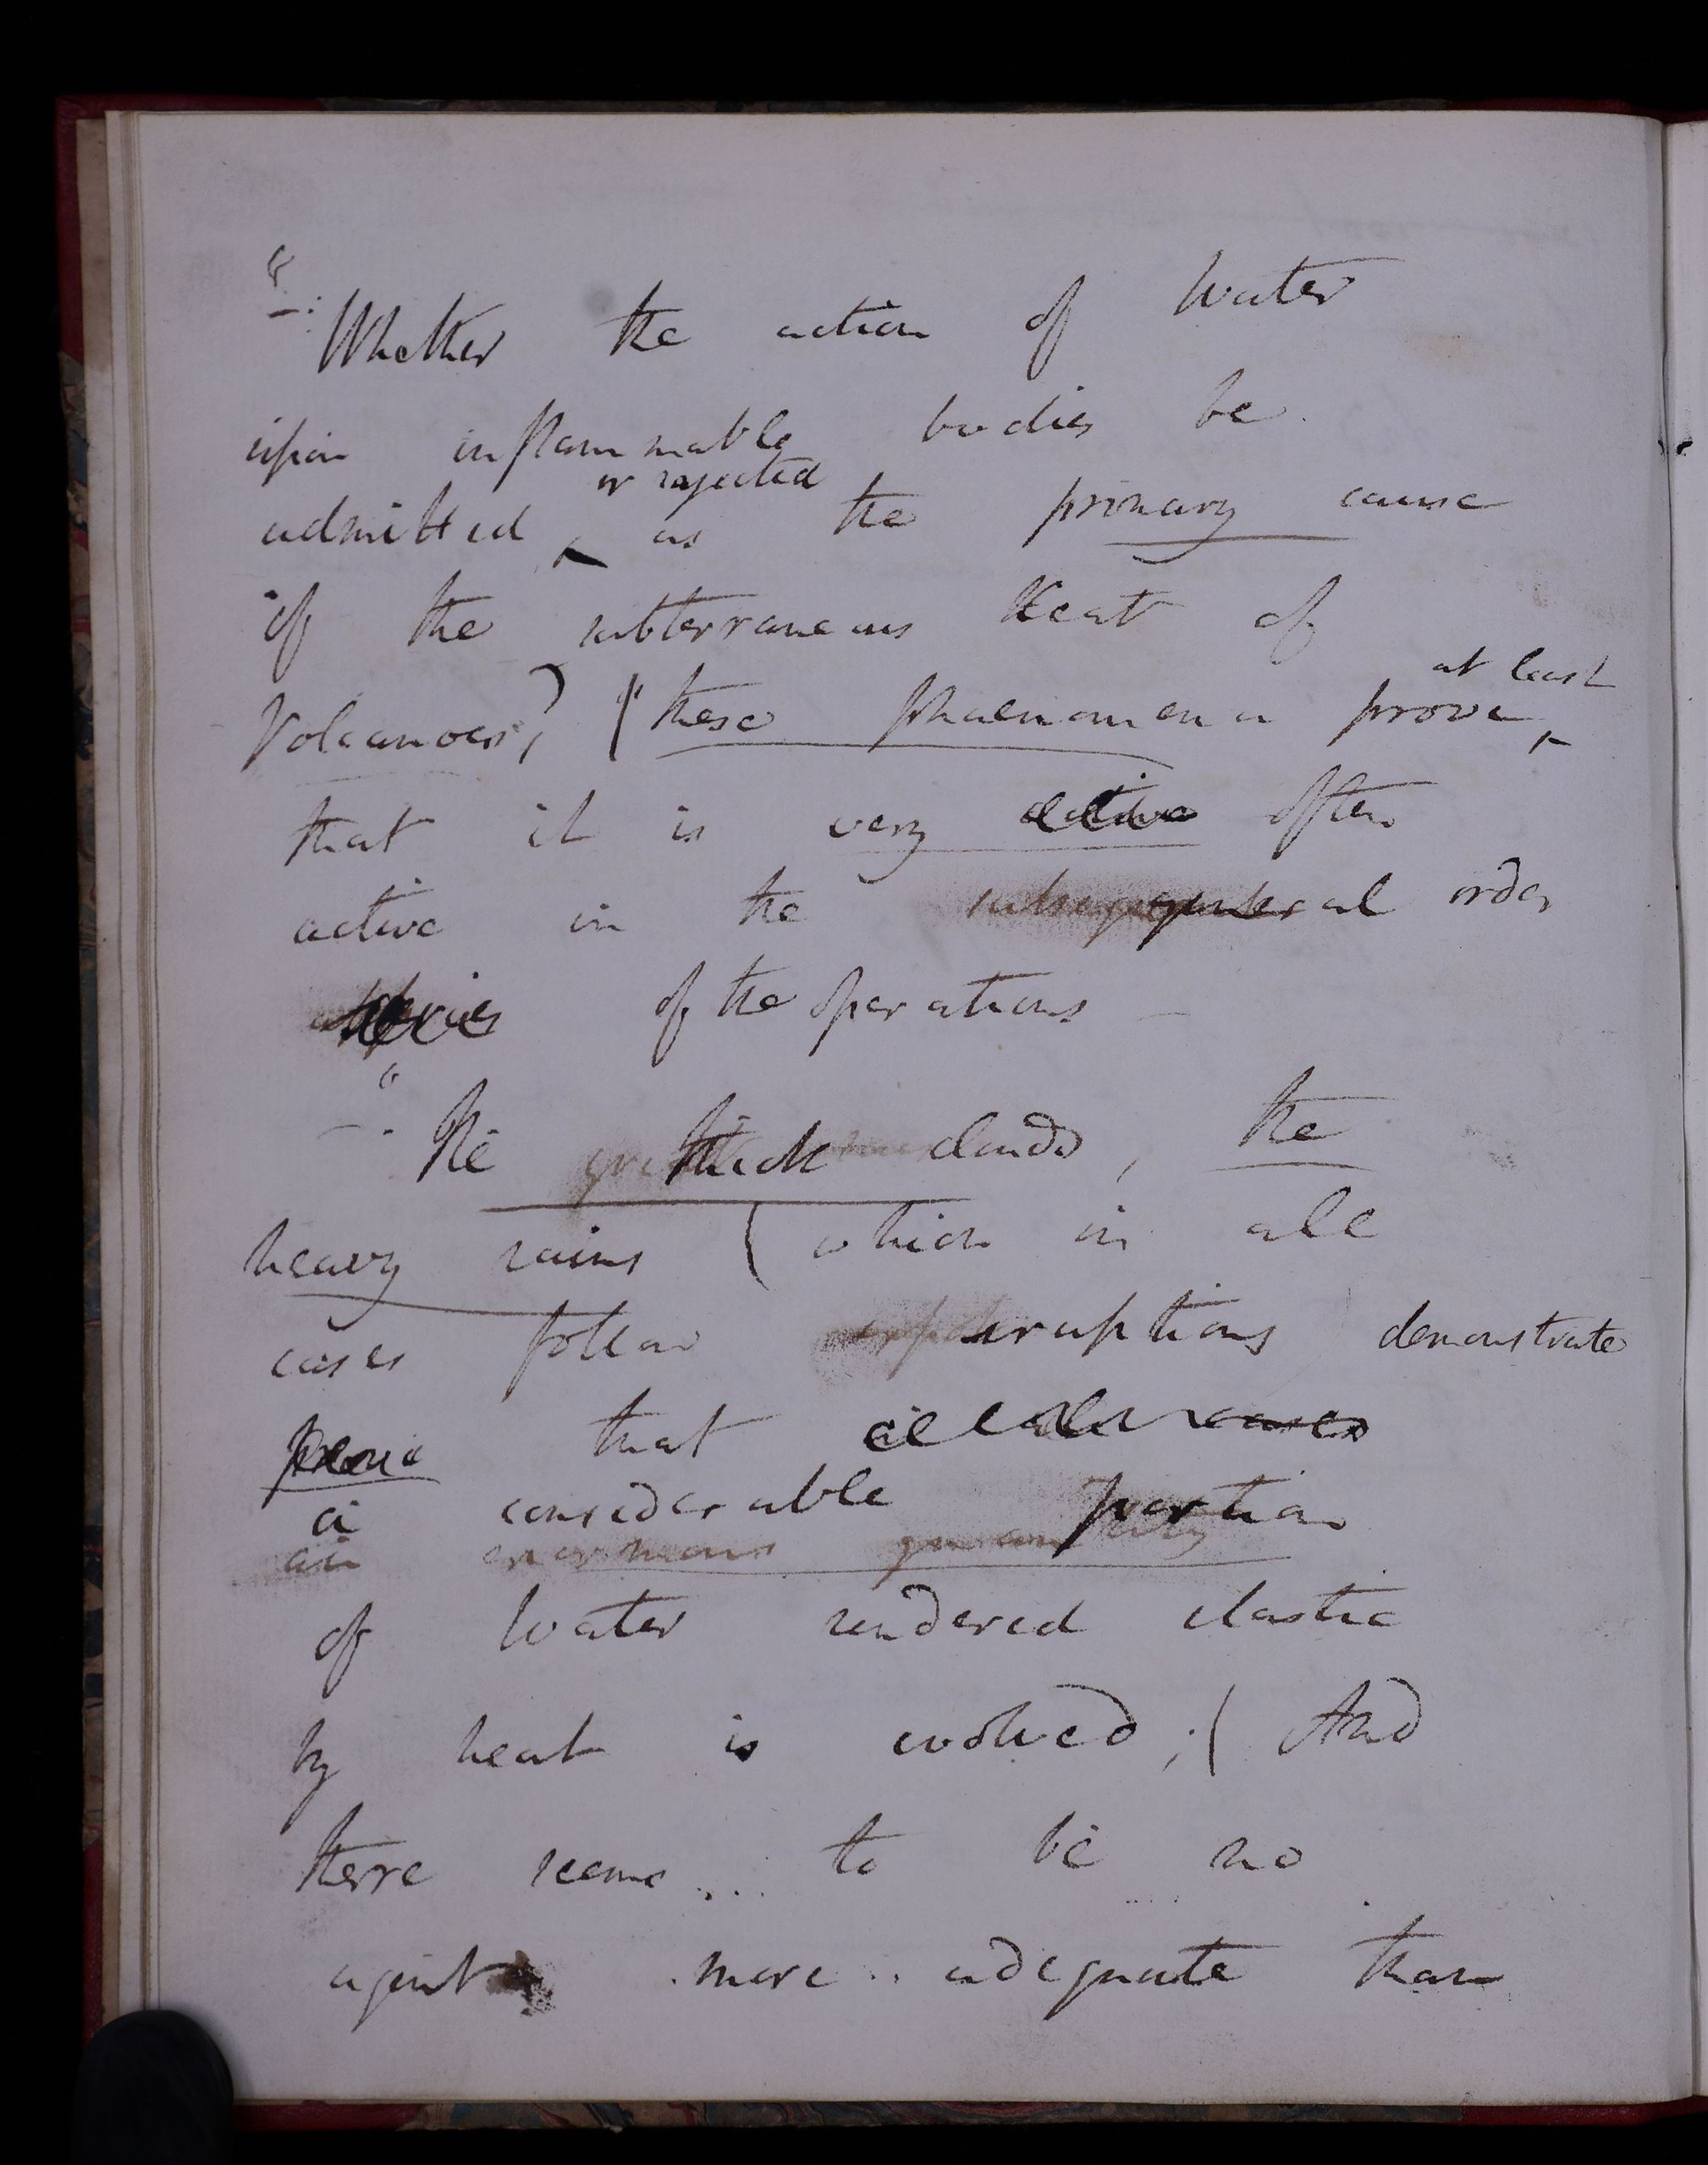 "—: Whether the action of Water
upon inflammable bodies be
or rejected
admitted ^ as the primary cause
of the subterraneous Heat of
at least
Volcanoes;) ("these phaenomena prove ^
that it is very active often
active in the general order
series of the operations —
"—. The thick clouds, the
heavy rains (which in all
cases follow eruptions demonstrate
prove that
a considerable portion
an enormous quantity
of Water rendered elastic
by heat is evolved; ( And
there seems ... to be no
agent more .. adequate than